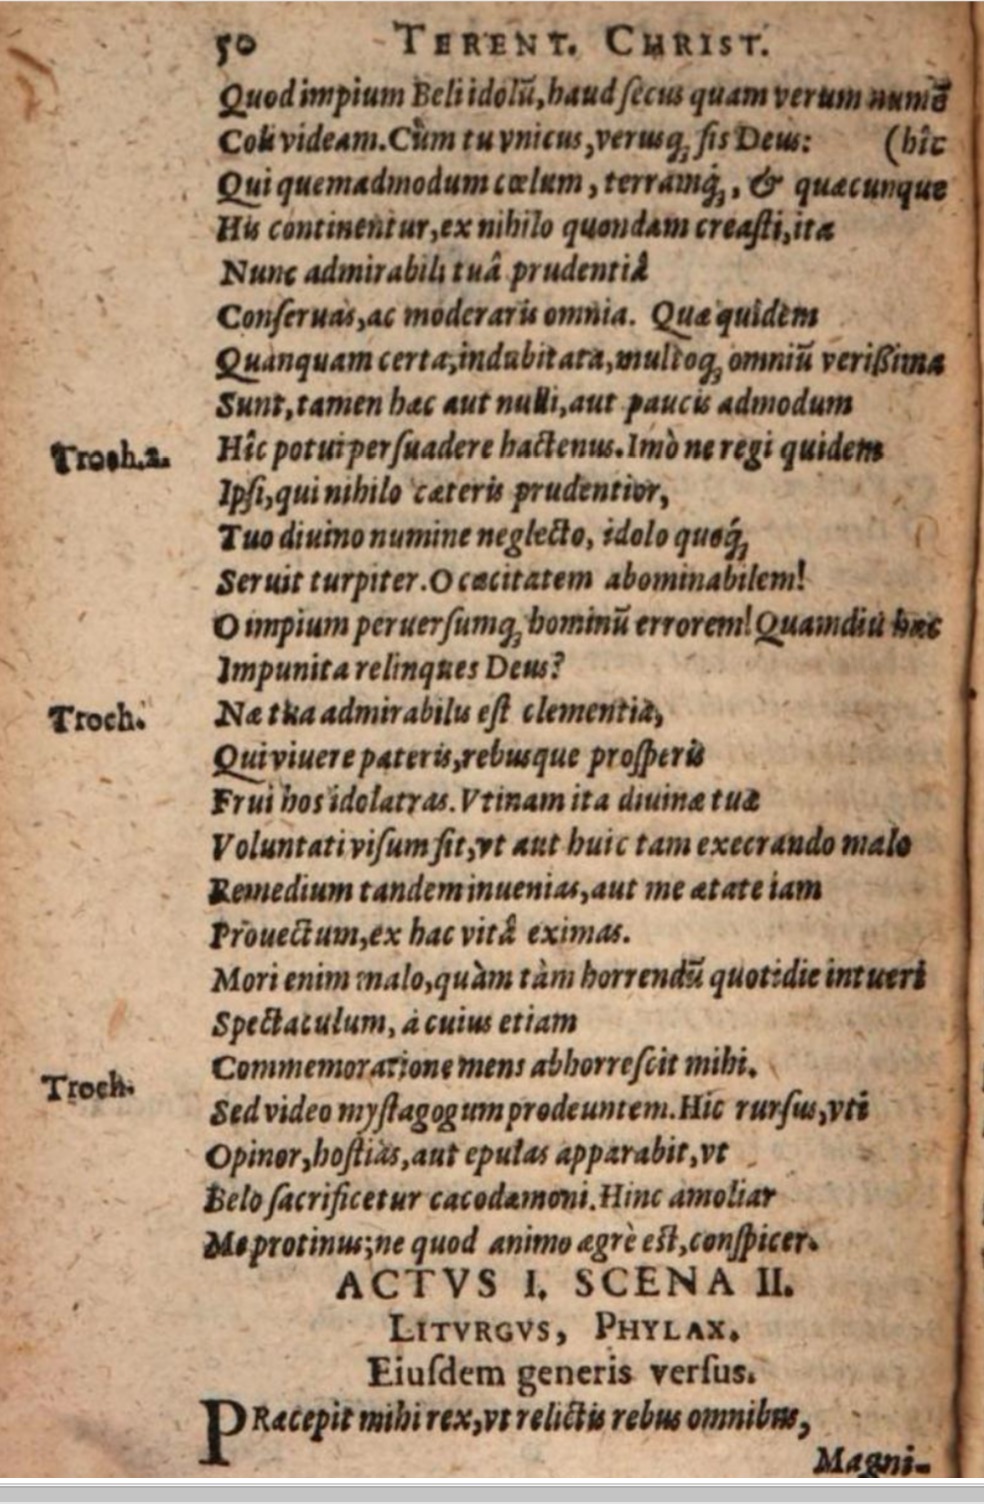 50 TERENT. CHRIST.
Quod impium Beli idolũ, haud ſecus quam verum numẽ
Coli videam. Cùm tu vnicus, verusq́; ſis Deus: (hîc
Qui quemadmodum cœlum, terramq́;, & quæcunque
His continentur, ex nihilo quondam creaſti, ita
Nunc admirabili tuâ prudentiâ
Conſeruas, ac moderaris omnia. Quæ quidèm
Quanquam certa, indubitata, multoq́; omniũ verißima
Sunt, tamen hæc aut nulli, aut paucis admodum
Troch.2. Hîc potui perſuadere hactenus. Imò ne regi quidem
Ipſi, qui nihilo cæteris prudentior,
Tuo diuino numine neglecto, idolo quoq́;
Seruit turpiter. O cæcitatem abominabilem!
O impium peruerſumq́; hominũ errorem! Quamdiu hæc
Impunita relinques Deus?
Troch. Næ tua admirabilis eſt clementia,
Qui viuere pateris, rebusque proſperis
Frui hos idolatras. Vtinam ita diuinæ tuæ
Voluntati viſum ſit, vt aut huic tam execrando malo
Remedium tandem inuenias, aut me ætate iam
Prouectum, ex hac vitâ eximas.
Mori enim malo, quàm tàm horrendũ quotidie intueri
Spectaculum, à cuius etiam
Commemoratione mens abhorreſcit mihi.
Troch. Sed video myſtagogum prodeuntem. Hic rurſus, vti
Opinor, hoſtias, aut epulas apparabit, vt
Belo ſacrificetur cacodæmoni. Hinc amoliar
Me protinus; ne quod animo ægrè eſt, conſpicer.
ACTVS I. SCENA II.
LITVRGVS, PHYLAX.
Eiuſdem generis verſus.
PRæcepit mihi rex, vt relictis rebus omnibus,
Magni-